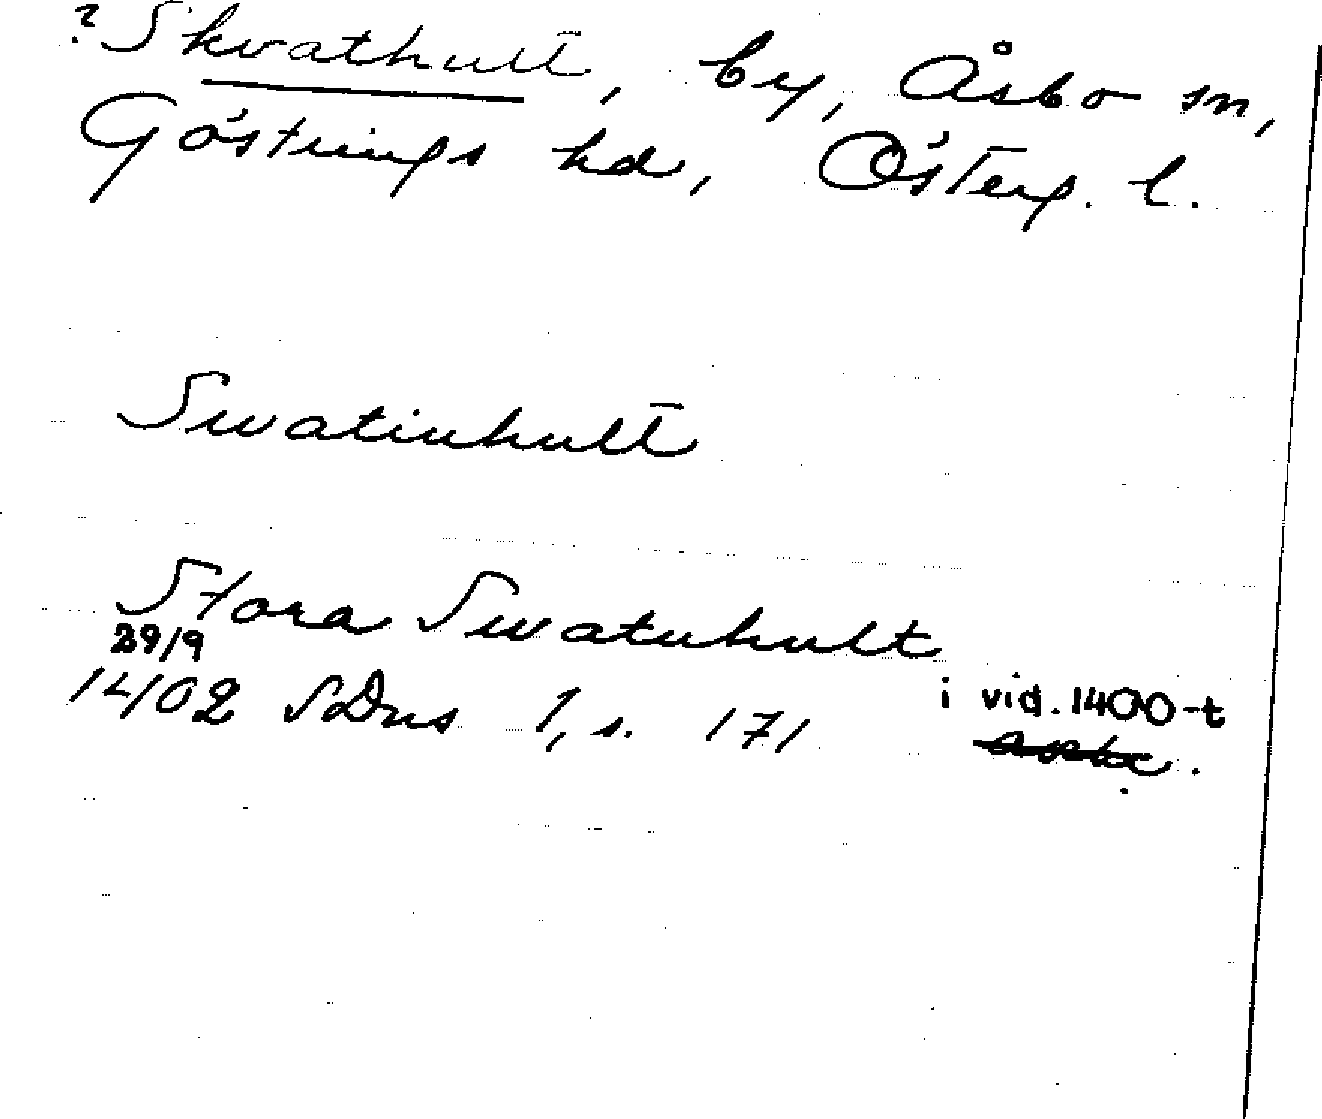 ? Skvathult, by, Åsbo sn,
Göstrings hd, Österg. l.
Swatinhult
Stora Swatuhult
29/9
14/02 SDns 1, s. 171 i vid. 1400-t